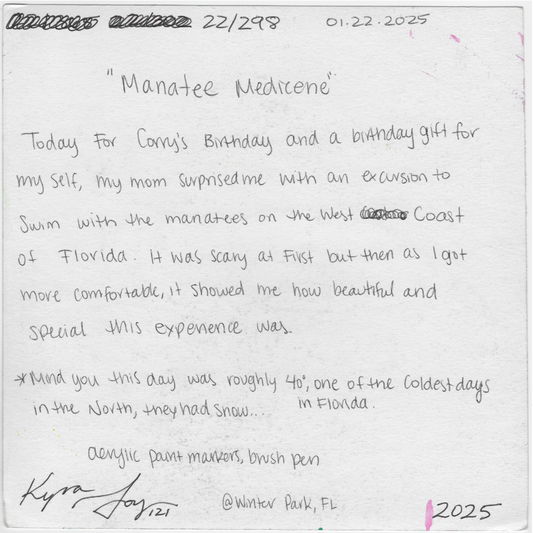 22/298 01.22.2025
"Manatee Medicene"
Today For Corry's Birthday and a birthday gift for
my self, my mom surprised me with an excursion to
Swim with the manatees on the West Coast
of Florida. It was scary at First but then as I got
more comfortable, it showed me how beautiful and
special this experience was.
*Mind you this day was roughly 40°, one of the Coldest days
in the North, they had snow... in Florida.
acrylic paint markers, brush pen
Kyra Joy 121 @Winter Park, FL 2025